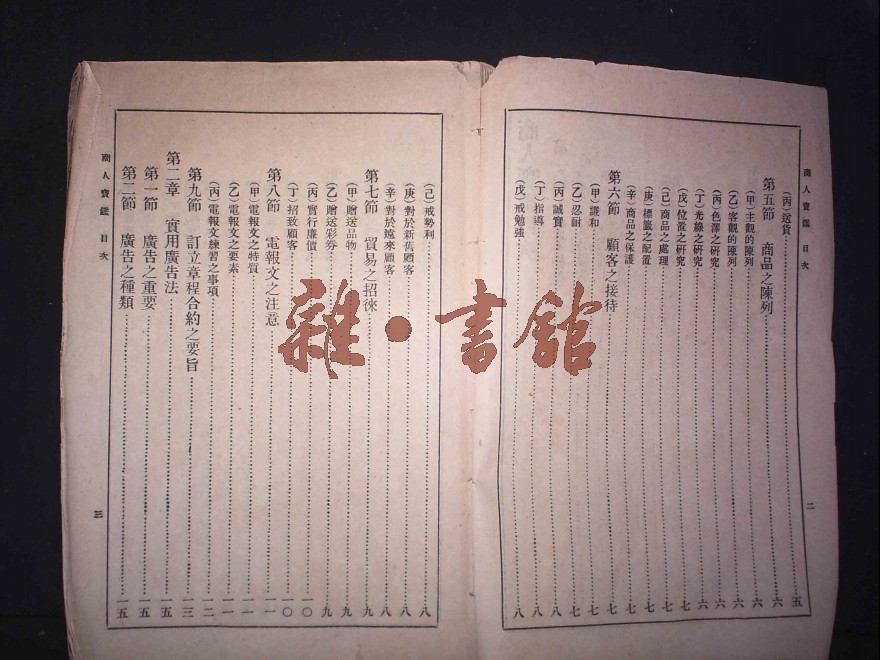 商人寶鑑 目次
二
(丙)送貨 五
第五節 商品之陳列 六
(甲)主觀的陳列 六
(乙)客觀的陳列 六
(丙)色澤之硏究 六
(丁)光線之硏究 六
(戊)位置之硏究 七
(己)商品之處理 七
(庚)標籤之配置 七
(辛)商品之保護 七
第六節 顧客之接待 七
(甲)謙和 七
(乙)忍耐 七
(丙)誠實 八
(丁)指導 八
(戊)戒勉強 八
(己)戒勢利 八
(庚)對於新舊顧客 八
(辛)對於遠來顧客 八
第七節 貿易之招徠 九
(甲)贈送品物 九
(乙)贈送彩券 九
(丙)實行廉價 一〇
(丁)招致顧客 一〇
第八節 電報文之注意 一一
(甲)電報文之特質 一一
(乙)電報文之要素 一一
(丙)電報文練習之事項 一二
第九節 訂立章程合約之要旨 一三
第二章 實用廣告法 一五
第一節 廣告之重要 一五
第二節 廣告之種類 一五
商人寶鑑 目次
三
雜·書館